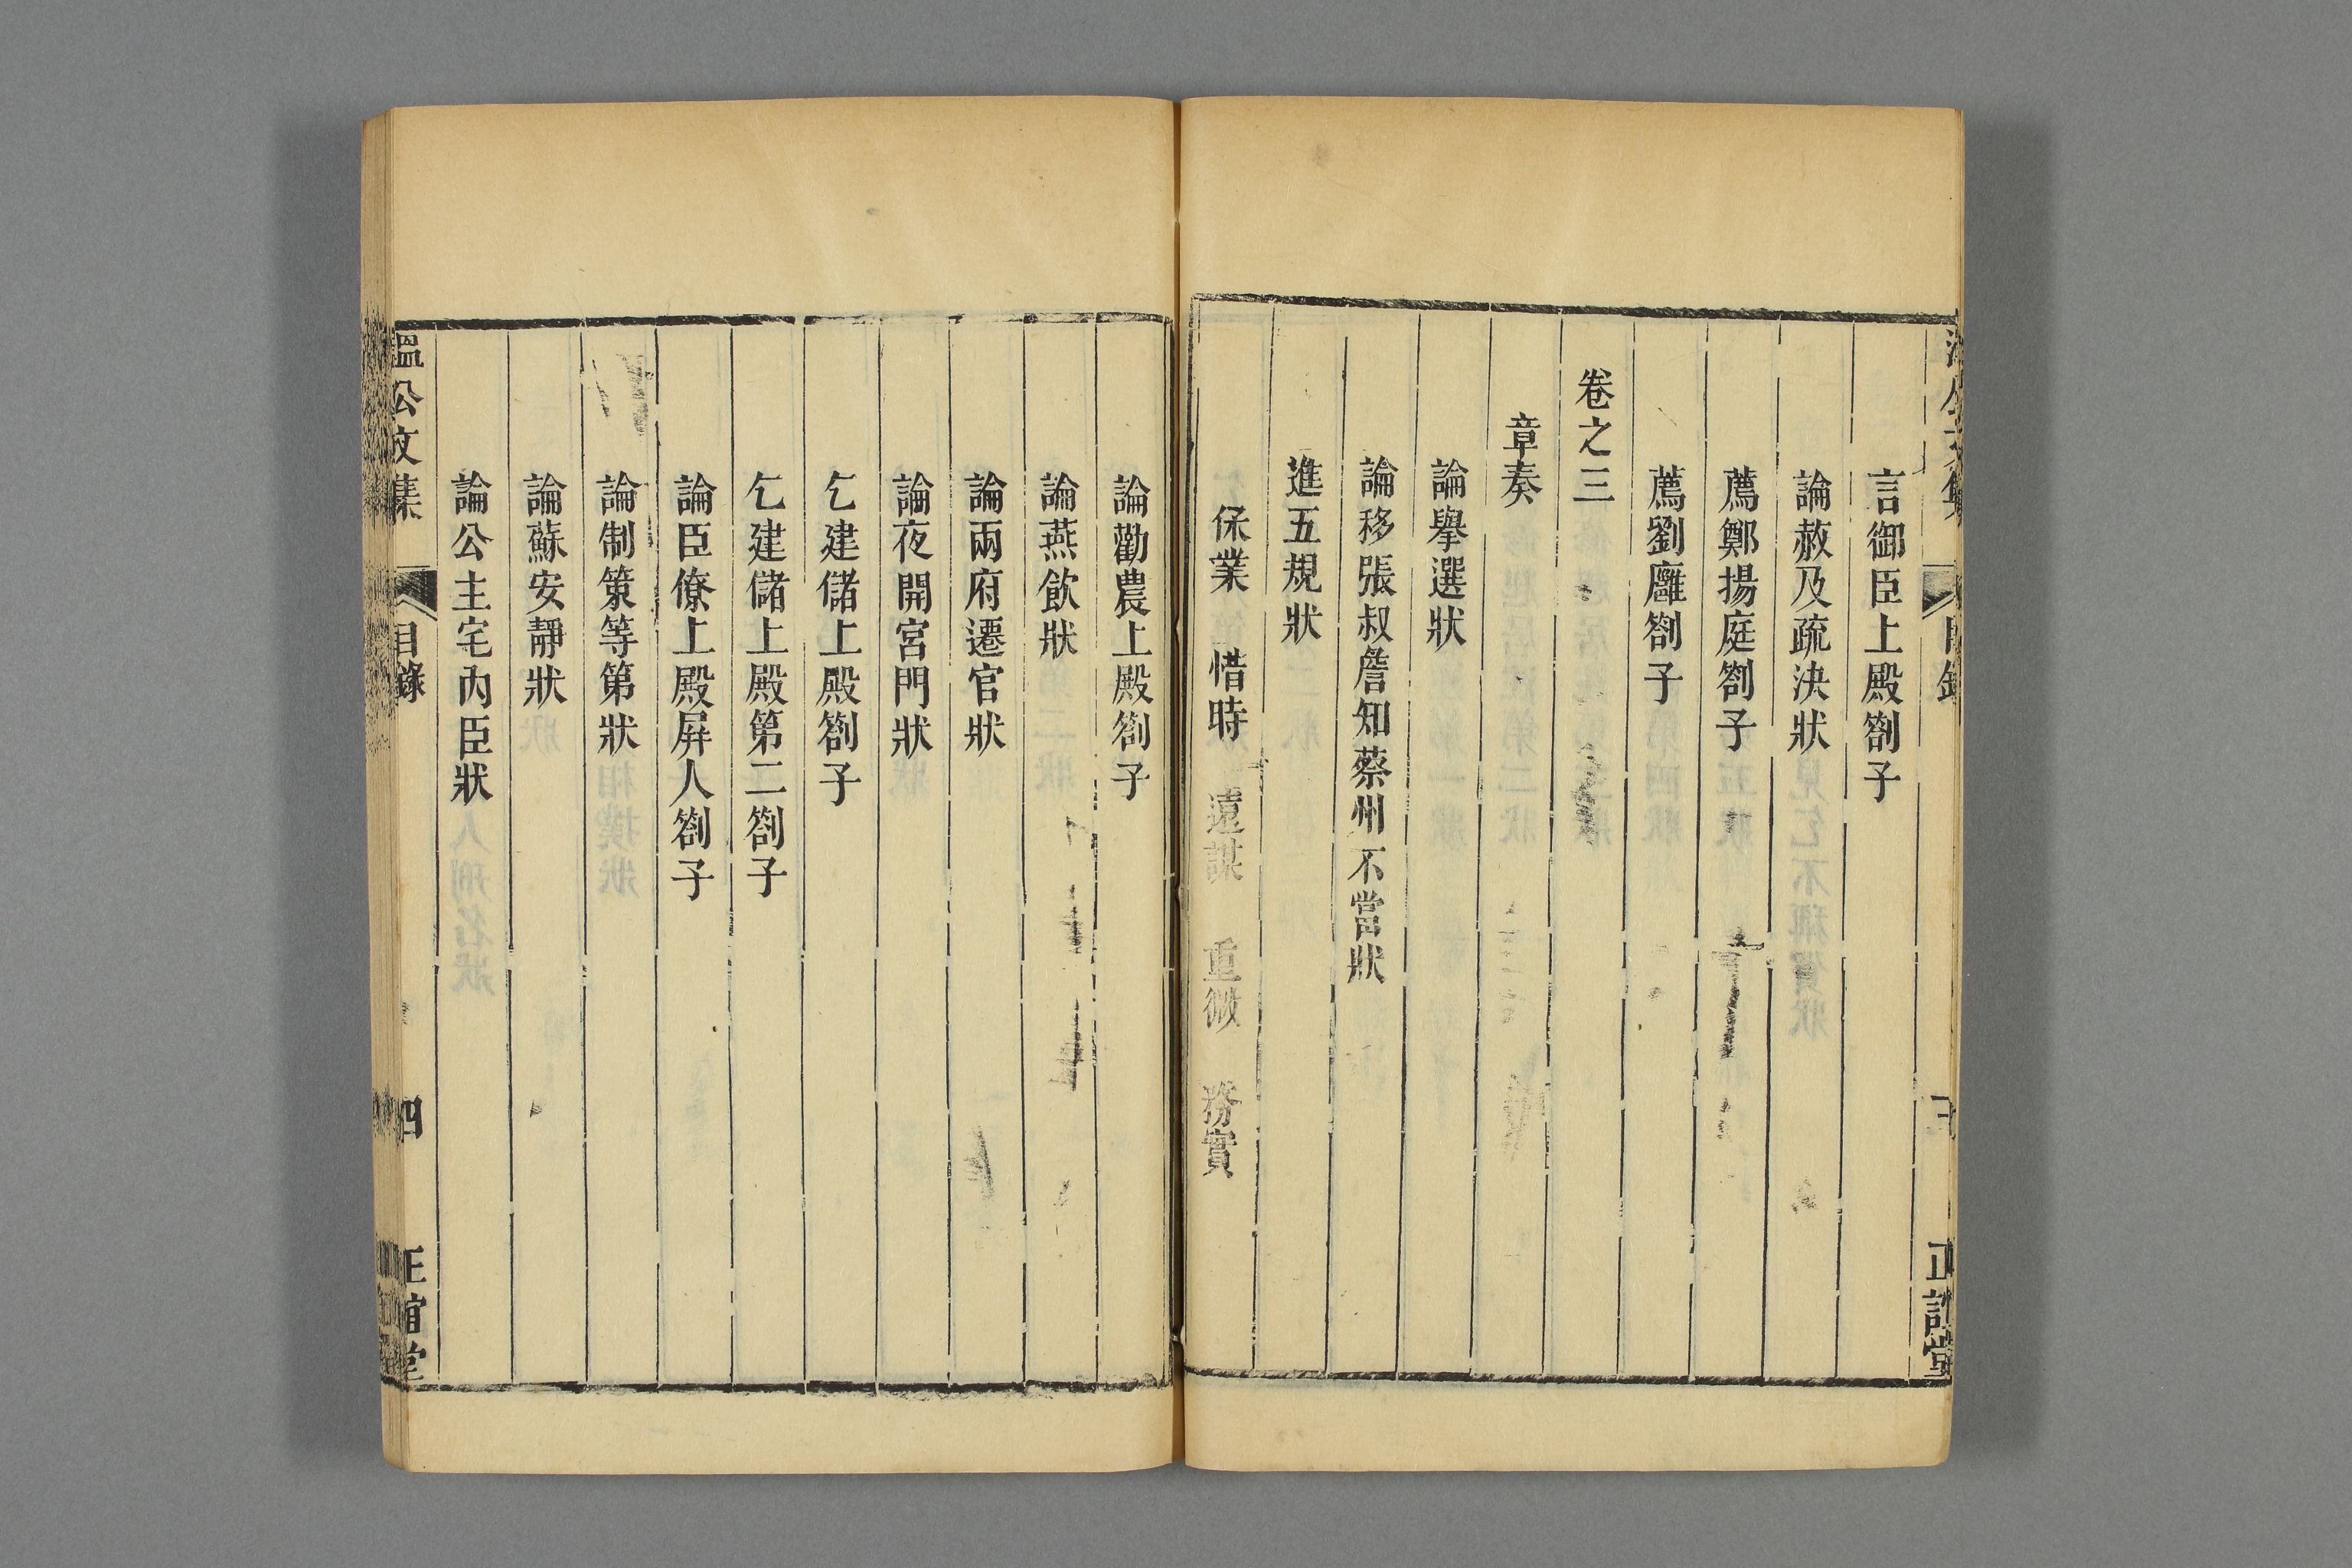 言御臣上殿劄子
論赦及疏決狀
薦鄭揚庭劄子
薦劉廱劄子
卷之三
章奏
論舉選狀
論移張叔詹知蔡州不當狀
進五規狀
保業　惜時　遠謀　重微　務實
論勸農上殿劄子
論燕飲狀
論兩府遷官狀
論夜開宮門狀
乞建儲上殿劄子
乞建儲上殿第二劄子
論臣僚上殿屏人劄子
論制策等第狀
論蘇安靜狀
論公主宅內臣狀
溫公文集　目錄　四　正誼堂